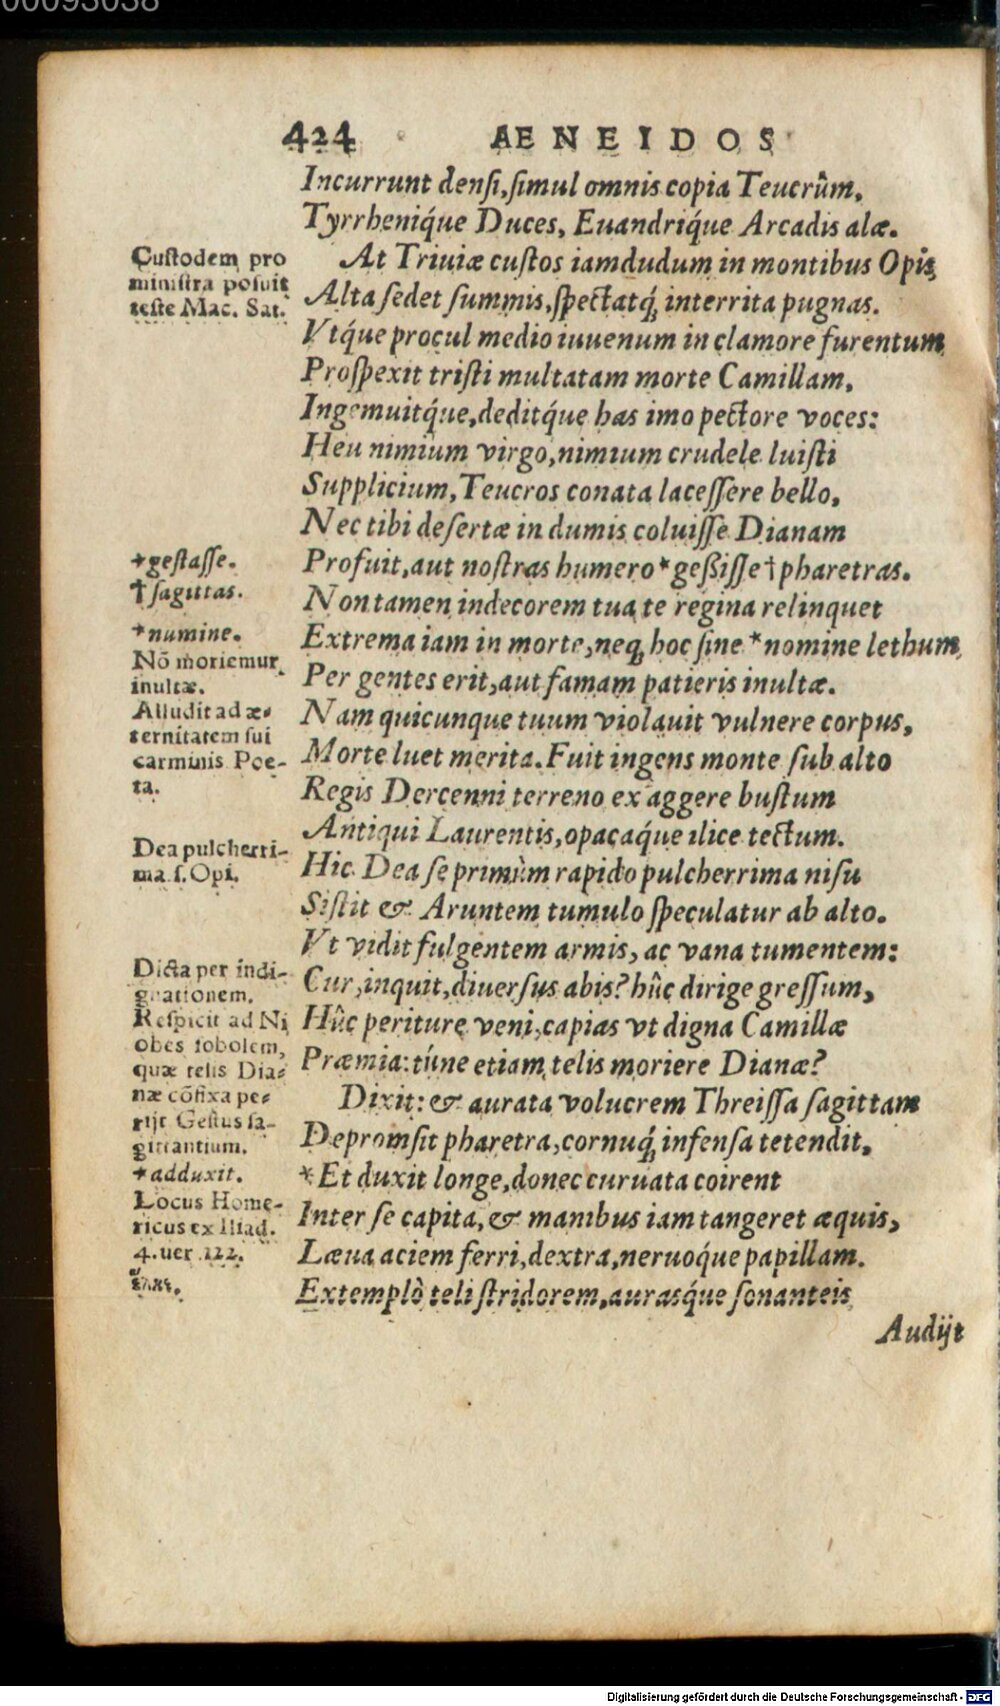 00093038
424 AENEIDOS
Incurrunt denſi, ſimul omnis copia Teucrûm,
Tyrrheniq́ue Duces, Euandriq́ue Arcadis alæ.
At Triuiæ cuſtos iamdudum in montibus Opis
Alta ſedet ſummis, ſpectatq́; interrita pugnas.
Vtq́ue procul medio iuuenum in clamore furentum
Proſpexit triſti multatam morte Camillam,
Ingemuitq́ue, deditq́ue has imo pectore voces:
Heu nimium virgo, nimium crudele luiſti
Supplicium, Teucros conata laceſſere bello,
Nec tibi deſertæ in dumis coluiſſe Dianam
Profuit, aut noſtras humero * geßiſſe † pharetras.
Non tamen indecorem tua te regina relinquet
Extrema iam in morte, neq; hoc ſine * nomine lethum
Per gentes erit, aut famam patieris inultæ.
Nam quicunque tuum violauit vulnere corpus,
Morte luet merita. Fuit ingens monte ſub alto
Regis Dercenni terreno ex aggere buſtum
Antiqui Laurentis, opacaq́ue ilice tectum.
Hic Dea ſe primùm rapido pulcherrima niſu
Siſtit & Aruntem tumulo ſpeculatur ab alto.
Vt vidit fulgentem armis, ac vana tumentem:
Cur, inquit, diuerſus abis? hûc dirige greſſum,
Hûc periture veni, capias vt digna Camillæ
Præmia: túne etiam telis moriere Dianæ?
Dixit: & aurata volucrem Threiſſa ſagittam
Depromſit pharetra, cornuq́; infenſa tetendit,
* Et duxit longe, donec curuata coirent
Inter ſe capita, & manibus iam tangeret æquis,
Læua aciem ferri, dextra, neruoq́ue papillam.
Extemplò teli ſtridorem, aurasq́ue ſonanteis
Audijt
Cuſtodem pro
miniſtra poſuit
teſte Mac. Sat.
* geſtaſſe.
† ſagittas.
* numine.
Nō moriemur
inultæ.
Alludit ad æ-
ternitatem ſui
carminis Poe-
ta.
Dea pulcherri-
ma ſ. Opi.
Dicta per indi-
gnationem.
Reſpicit ad Ni
obes ſobolem,
quæ telis Dia-
næ cōfixa pe-
rijt Geſtus ſa-
gittantium.
* adduxit.
Locus Home-
ricus ex Iliad.
4. uer. 122.
ἕλκε.
Digitalisierung gefördert durch die Deutsche Forschungsgemeinschaft - DFG